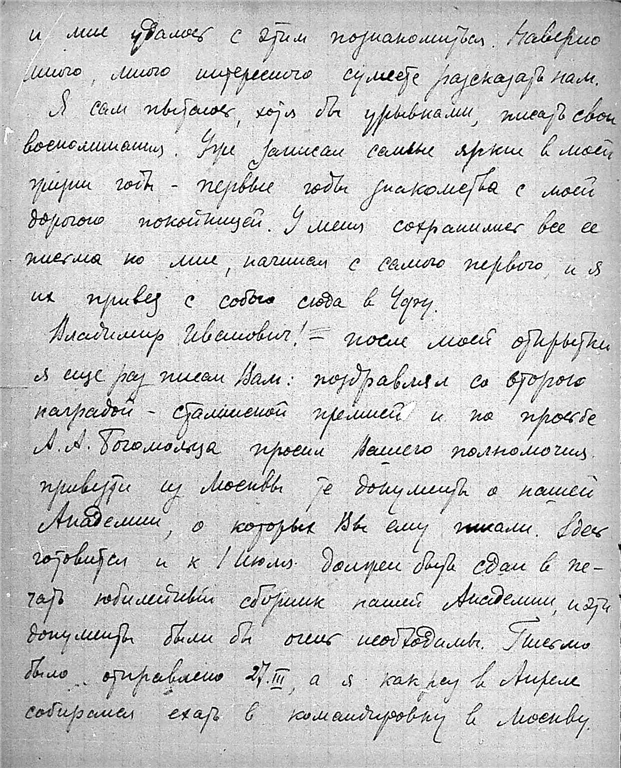 и мне удалось с этим познакомиться. Наверно
много, много интересного сумеете рассказать нам.
Я сам пытаюсь, хотя бы урывками, писать свои
воспоминания. Уже записал самые яркие в моей
жизни годы – первые годы знакомства с моей
дорогою покойницей. У меня сохранились все ее
письма ко мне, начиная с самого первого, и я
их привез с собою сюда в Уфу.
Владимир Иванович! – после моей открытки
я еще раз писал Вам: поздравлял со второю
наградой – сталинской премией и по просьбе
А.А. Богомольца просил Вашего полномочия
привезти из Москвы те документы о нашей
Академии, о которых Вы ему писали. Здесь
готовится и к 1 июля должен быть сдан в пе-
чать юбилейный сборник нашей Академии, и эти
документы были бы очень необходимы. Письмо
было отправлено 27.III, а я как раз в Апреле
собирался ехать в командировку в Москву.